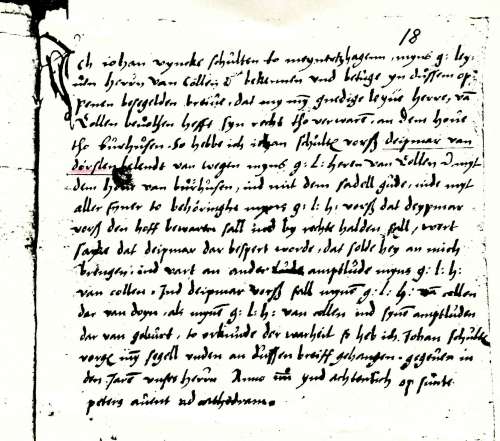 18
Ich iohan vyncke schulten to meyntzhagenn, myns g: ley-
uen herrn van Collen &c bekennen vnd betuge yn dussem op
penen besegelden breiue, dat my myn gnedige leyue herre, van
Collen beuolhen heffe syn recht tho verwaren, an dem houe
tho burhusen. So hebbe ich iohan schulte vorß deipmar van
dörslen belendt van wegen myns g: l: heren van Collen &c myt
dem houe van burhusen, ind mit dem sadell gude, inde myt
aller syner to behöringhe myns g: l: h: verß dat deypmar
vorß den hoff bewaren sall ind by rechte halden sall, wert
sacke dat deipmar dar bespert worde, dat solde hey an mich
brengen, ind vart an ander amptlude myns g: l: h:
van collen. Ind deipmar verß sall mynem g: l: h: van collen
dar van doyn, als mynem g: l: h: van collen ind synen amptluden
dar van geburt, to orkunde der warheit so heb ich Johan schulte
vorgt myn segell vnden an dussen breiff gehangen. gegeuen in
den Jaren vnses herrn Anno ynd achtentich op sunte
peters auent ad cathedram.